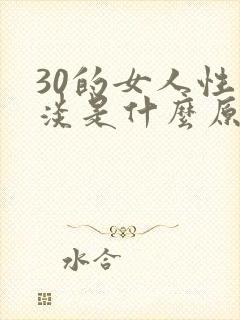 30的女人性
淡是什麼原
水合